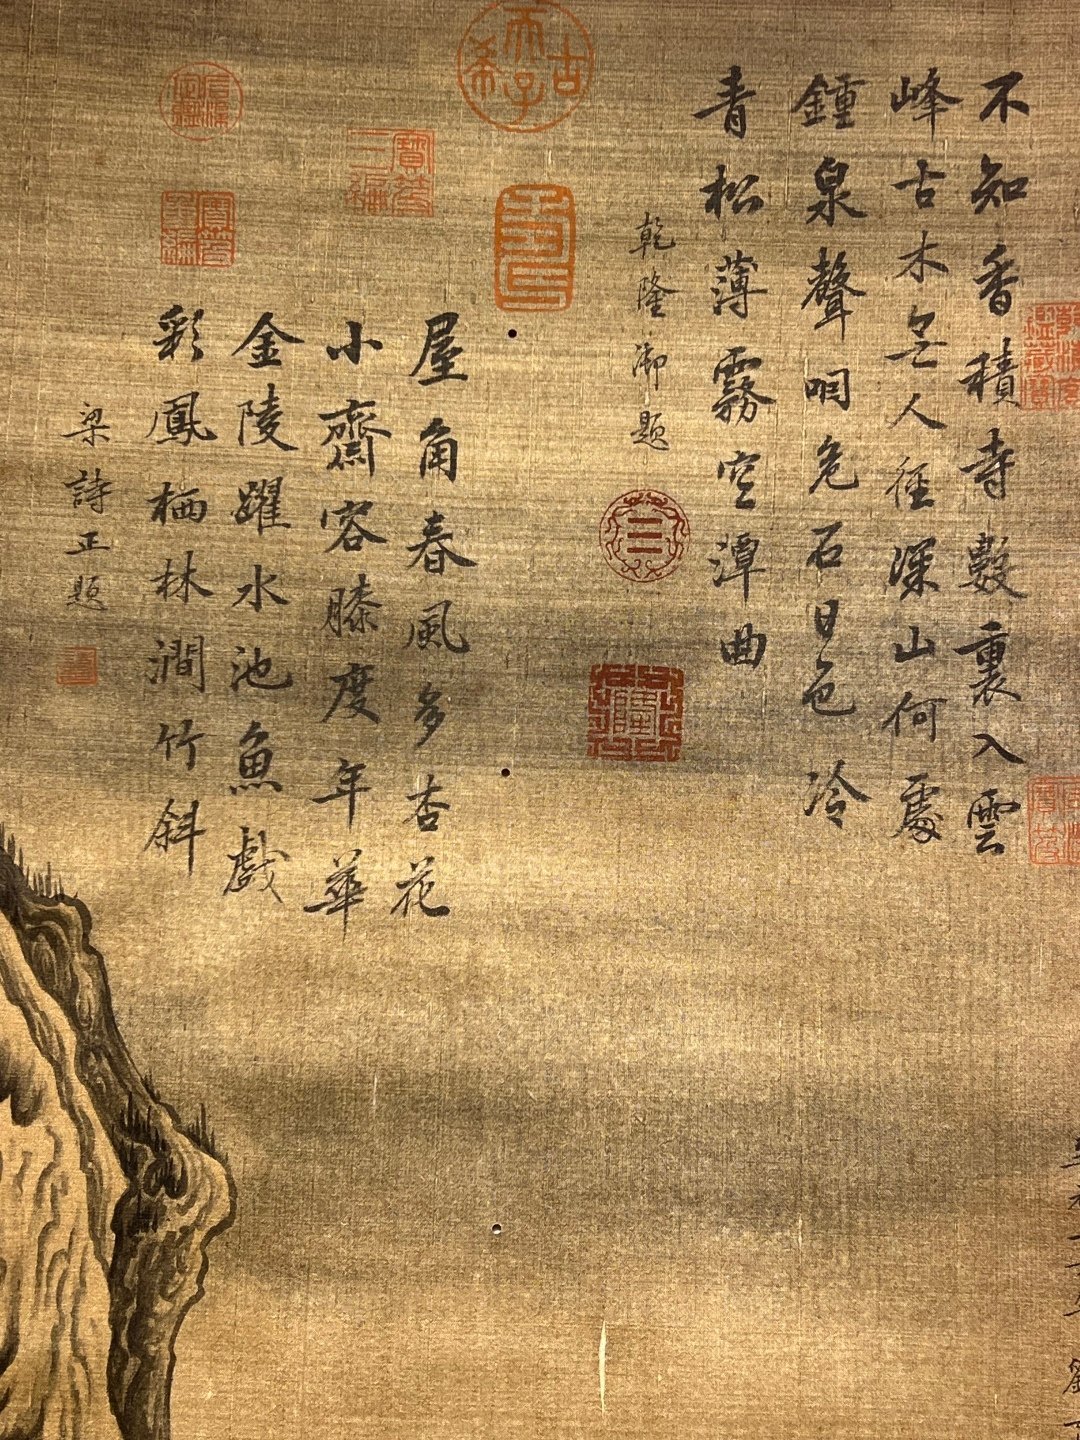 不知香積寺數裏入雲
峰古木無人徑深山何處
鍾泉聲咽危石日色冷
青松薄霧空潭曲
乾隆御題
古希天子
壽
屋角春風多杏花
小齋容膝度年華
金陵躍水池魚戲
彩鳳栖林澗竹斜
梁詩正題
寶笈三編
石渠定鑑
寶笈重編